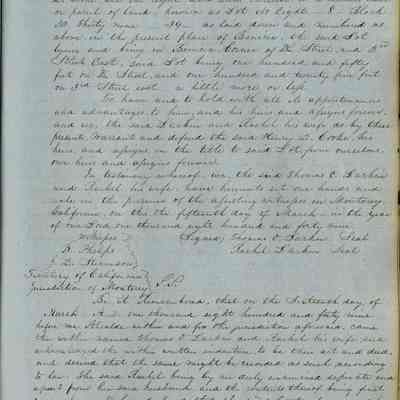 or parcel of land, known as Lot No Eight - 8 - Block
No Thirty nine - 39 - as laid down and numbered as
above, in the present plan of Benicia, the said Lot
lying and being in Benicia Corner of D Street, and 3rd
Street East, said Lot being one hundred and fifty
feet on D Street, and one hundred and twenty five feet
on 3rd Street east a little more or less.
To have and to hold with all the appurtenances
and advantages to him, and his heirs and assigns forever,
and we, the said Larkin and Rachel his wife, do by these
presents Warrant and defend the said Henry D. Cooke, his
heirs, and assigns in the title to said Lot, from ourselves,
our heirs and assigns forever.
In testimony whereof, we, the said Thomas O. Larkin
and Rachel his wife, have hereunto set our hands and
seals in the presence of the attesting witnesses in Monterey,
California, on this the fifteenth day of March, in the year
of our Lord one thousand eight hundred and forty nine.
Witnesses Signed, Thomas O Larkin Seal
Rachel Larkin Seal
Territory of California
Jurisdiction of Monterey SS.
Be it Remembered, that on the Fifteenth day of
March A.D. one thousand eight hundred and forty nine
before me Alcalde within and for the jurisdiction aforesaid, came
the within named Thomas O Larkin and Rachel his wife and
acknowledged the within written indenture to be their act and deed,
and desired that the same might be recorded as such according
to law. She said Rachel being by me duly examined separate and
apart from her said husband and the contents thereof being first